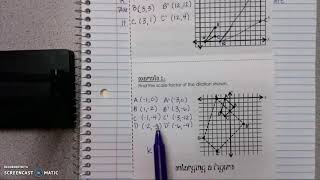 B(3,3) B' (12,12)
C (3,1) C' (12,4)
Example 2:
Find the scale factor of the dilation shown.
A (-1,0) A' (-3,0)
B (1,-2) B' (3,-6)
C (-1,-4) C' (-3,-12)
D (-2,-3) D' (-6,-9)
K
Enlarging a Figure
SCREENCAST-O-MATIC